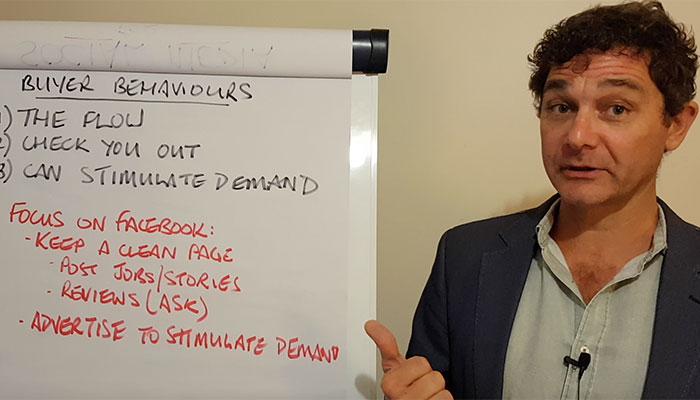 SOCIAL MEDIA
BUYER BEHAVIOURS
1) THE FLOW
2) CHECK YOU OUT
3) CAN STIMULATE DEMAND
FOCUS ON FACEBOOK:
- KEEP A CLEAN PAGE
- POST JOBS/STORIES
- REVIEWS (ASK)
- ADVERTISE TO STIMULATE DEMAND